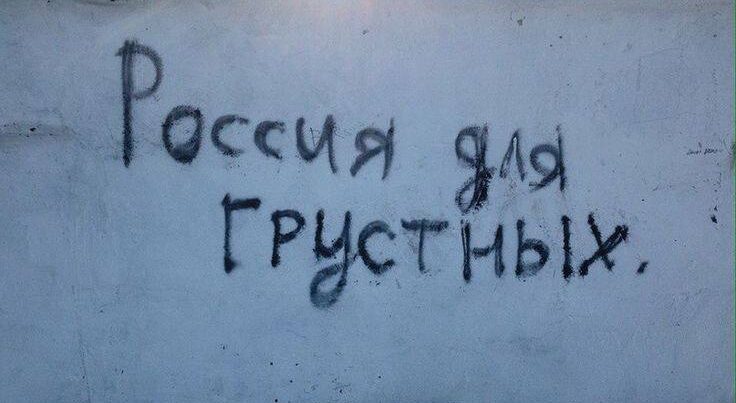 Россия для
грустных.